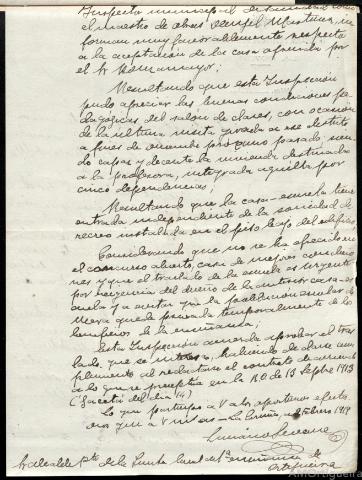 Inspector municipal de Sanidad como
el maestro de obras Manuel Martinez, in-
forman muy favorablemente respecto
a la aceptación de la casa ofrecida por
el Sr
Resultando que esta Inspección
pudo apreciar las buenas condiciones pe-
dagógicas del salón de clases, con ocasión
de la última visita girada a ese distrito
a fines de proximo pasado, sien-
do capaz y decente la vivienda destinada
a la profesora, integrada aquella por
cinco dependencias;
Resultando que la casa-escuela tiene
entrada independiente de la sociedad de
recreo instalada en el piso bajo del edificio;
Considerando que no se ha ofrecido en
el concurso abierto, casa de mejores condicio-
nes y que el traslado de la escuela es urgente
por exigencia del dueño de la anterior casa-es-
cuela y a evitar que la población escolar de
Mera quede privada temporalmente de los
beneficios de la enseñanza;
Esta Inspección acuerda aprobar el tras-
lado que se interesa, habiendo de darse cum-
plimiento al redactarse el contrato de arriendo
a lo que se preceptúa en la R.O de 13 Sepbre 1913
(Gaceta del dia 14)
Lo que participo a V a los oportunos efectos
Dios gue a V m s a s La Coruña, Febrero 1919
Luciano Seoane
Sr Alcalde Pte de la Junta local de 1ª enseñanza de
Ortigueira